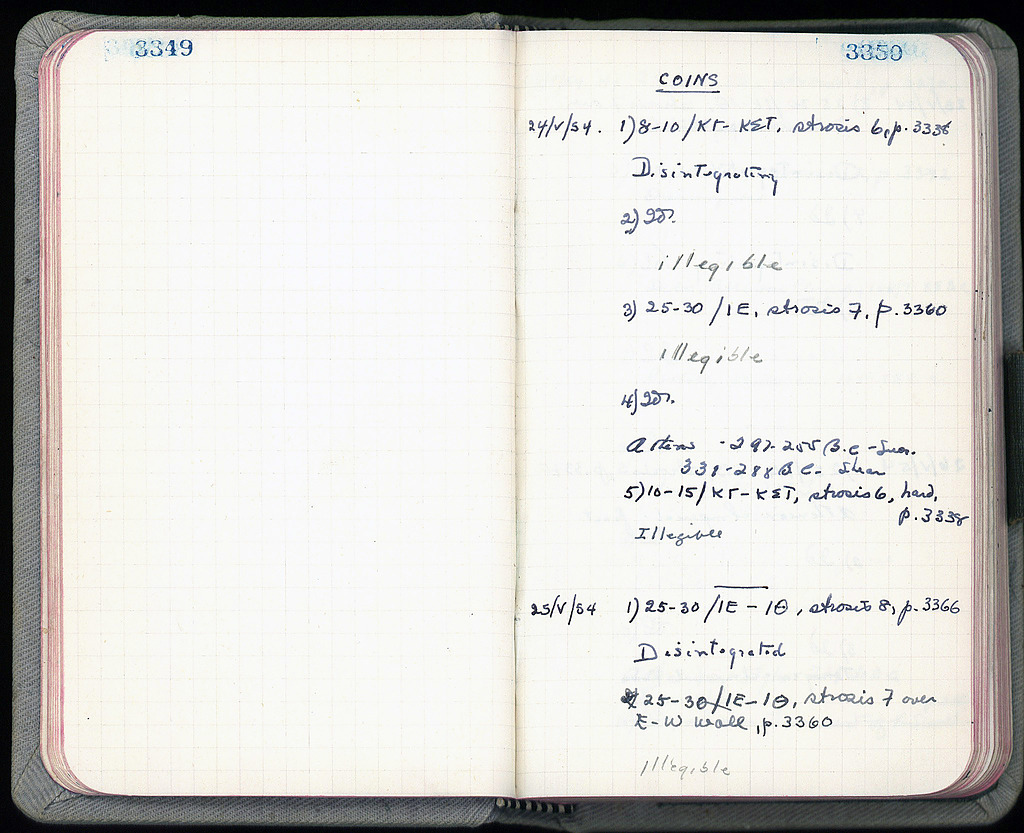 3349
3350
COINS
24/V/54. 1) 8-10/ΚΓ-ΚΣΤ, strosis 6, p. 3338
Disintegrating
2) Id.
illegible
3) 25-30/ΙΕ, strosis 7, p. 3360
illegible
4) Id.
Athens - 297-255 B.C -
B.C. -
5) 10-15/ΚΓ-ΚΣΤ, strosis 6, hard,
p. 3338
Illegible
25/V/54 1) 25-30/ΙΕ-ΙΘ, strosis 8, p. 3366
Disintegrated
25-30/ΙΕ-ΙΘ, strosis 7 over
E-W wall, p. 3360
Illegible